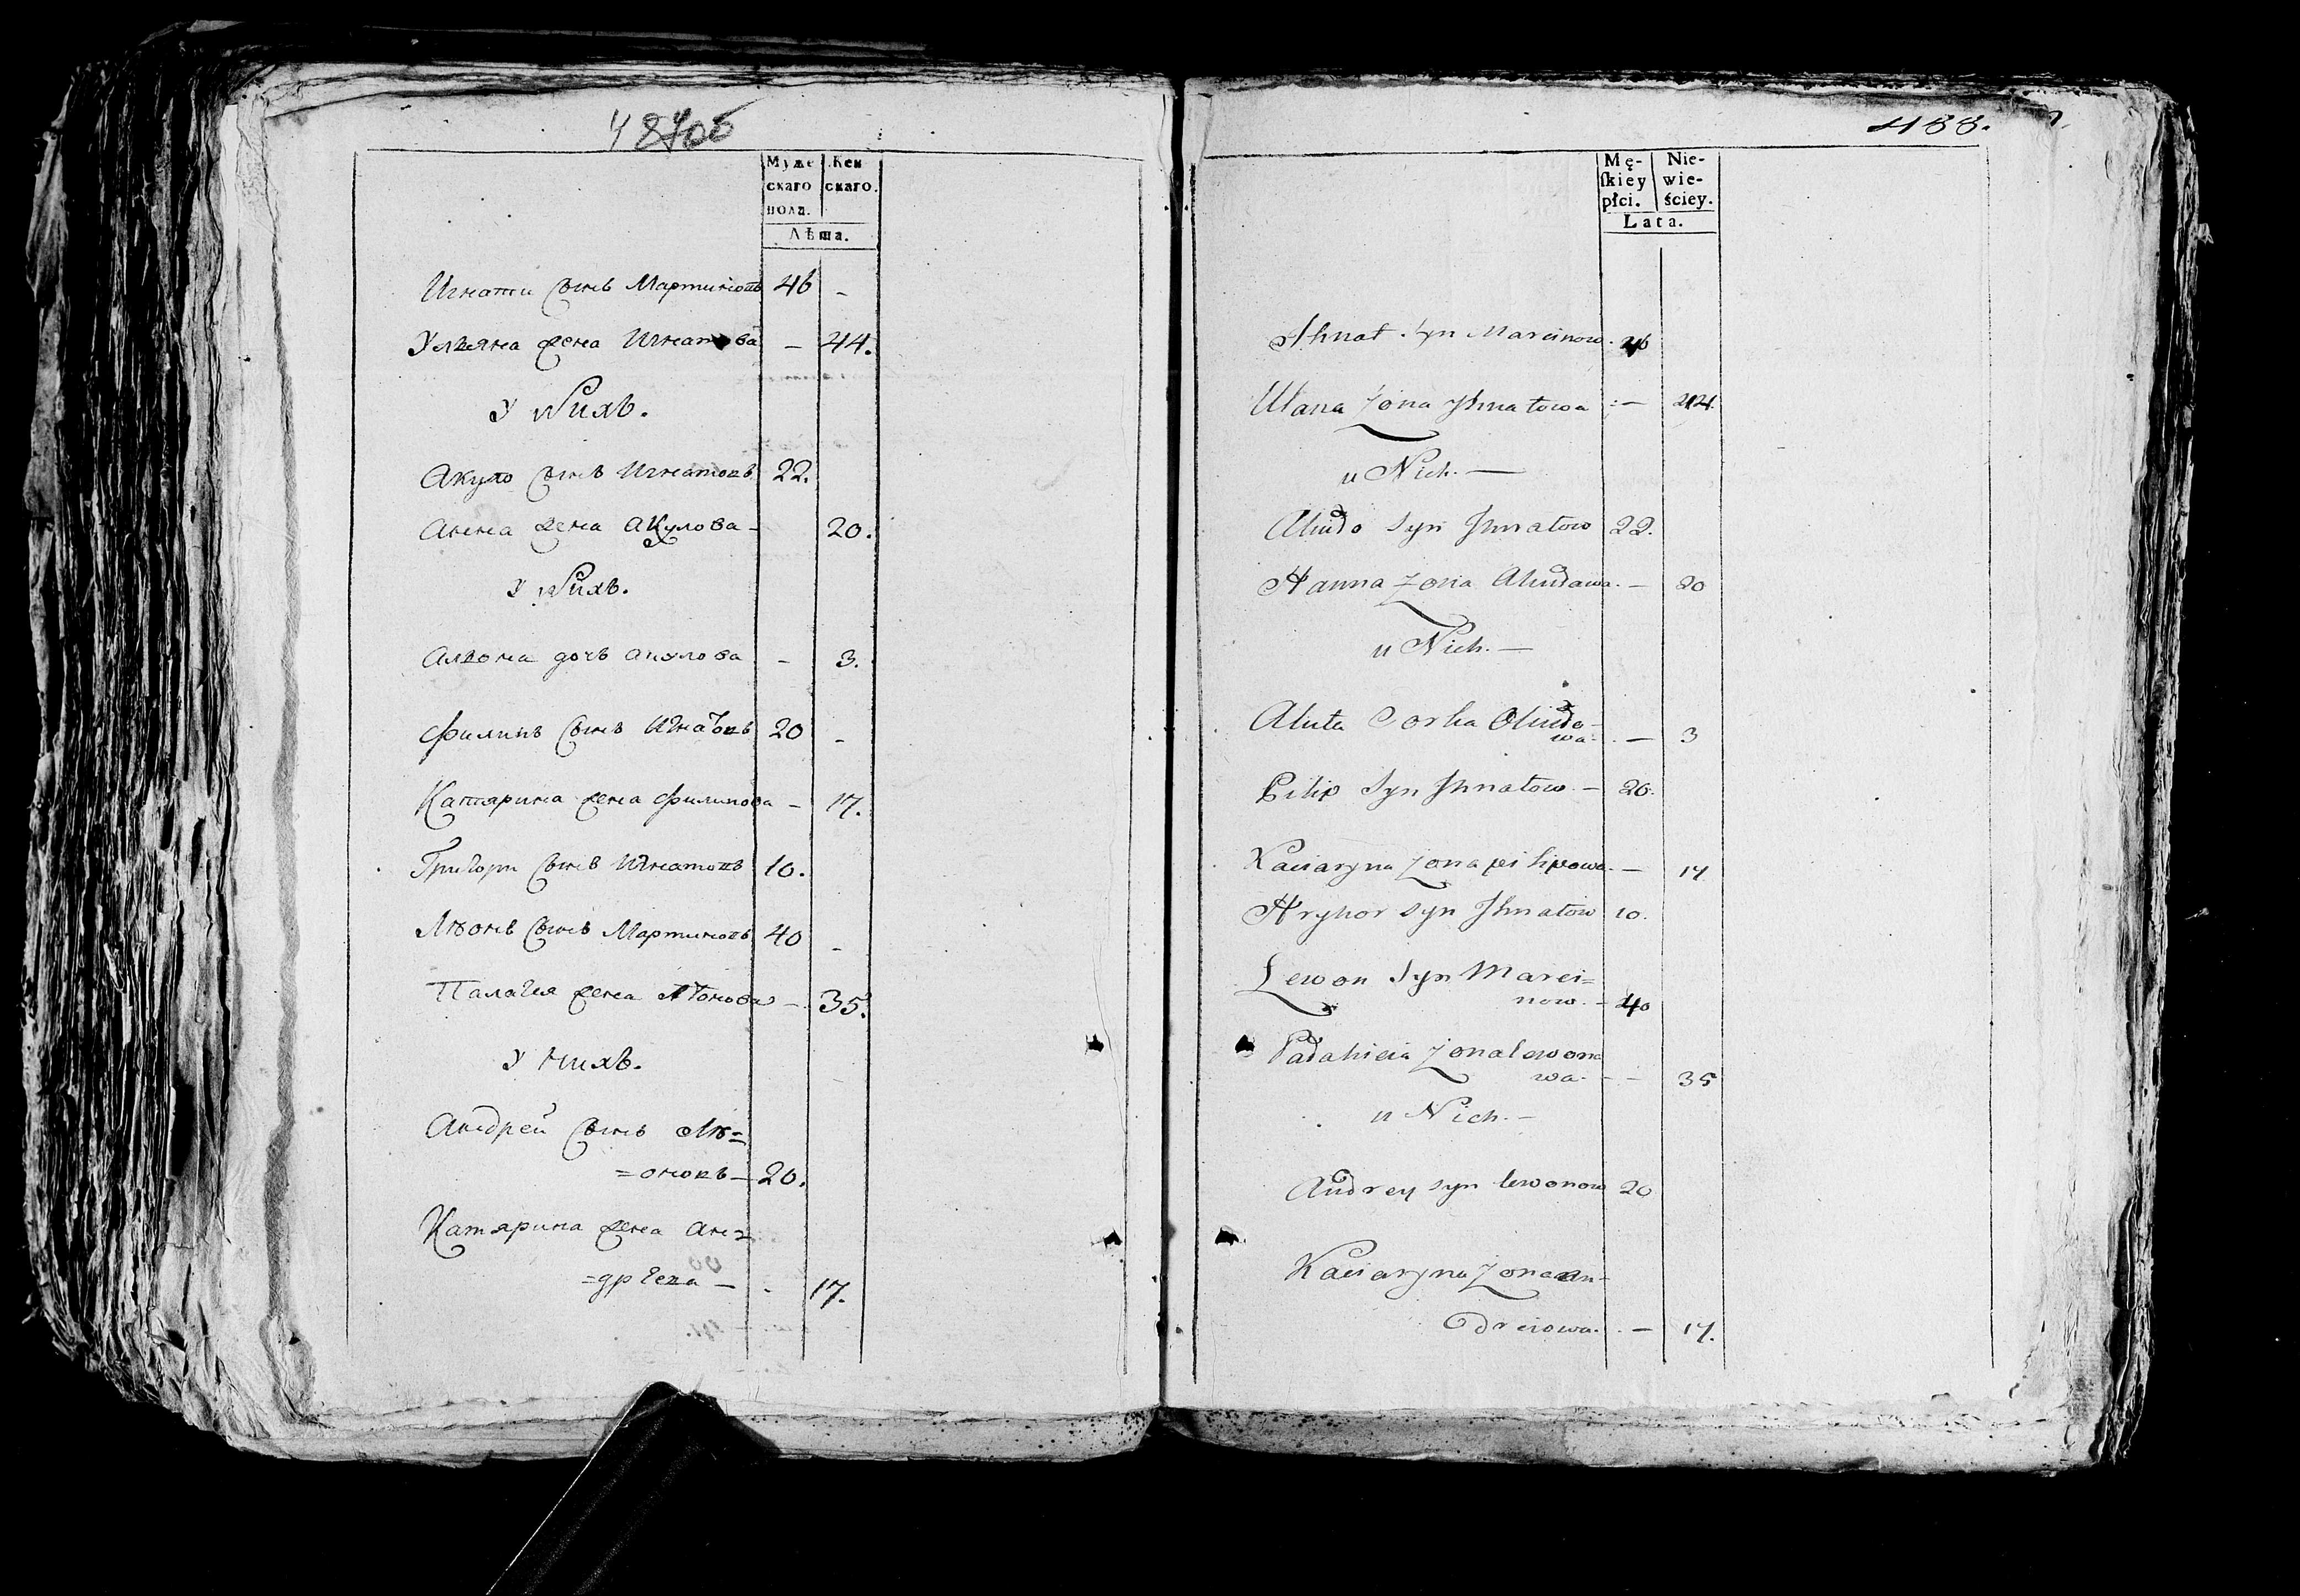 487об
Муже
скаго
пола.
Жен
скаго.
Лѣта.
Игнати сынъ Мартиновъ 46 -
Ульяна жена Игнатова - 44.
У Нихъ.
Акуло сынъ Игнатовъ 22.
Анна жена Акулова - 20.
У Нихъ.
Алюта дочь Акулова - 3.
Филипъ сынъ Игнатовъ 20 -
Катярина жена Филипова - 17.
Григори сынъ Игнатовъ 10.
Лѣонъ сынъ Мартиновъ 40 -
Палагея жена Лѣонова - 35.
У Нихъ.
Андрей сынъ Лѣ=
=оновъ - 20.
Катярина жена Ан=
=дрѣева - 17.
488.
Mę-
skiey
płci.
Nie-
wie-
ściey.
Lata.
Ihnat Syn Marcinow. 46
Ułana Żona Ihnatowa - 44.
u Nich. -
Akudo Syn Ihnatow 22.
Hanna Żona Akudawa. - 20
u Nich. -
Aluta Corka Akudo-
wa. - 3
Pilip Syn Ihnatow. - 20.
Kaciaryna Żona pilipowa. - 17
Hryhor Syn Ihnatow 10.
Lewon Syn Marci=
now. - 40
Pałahieia Żona lewona
wa. - - 35
u Nich. -
Andrey Syn lewonow 20
Kaciaryna Żona an-
dreiowa. - 17.